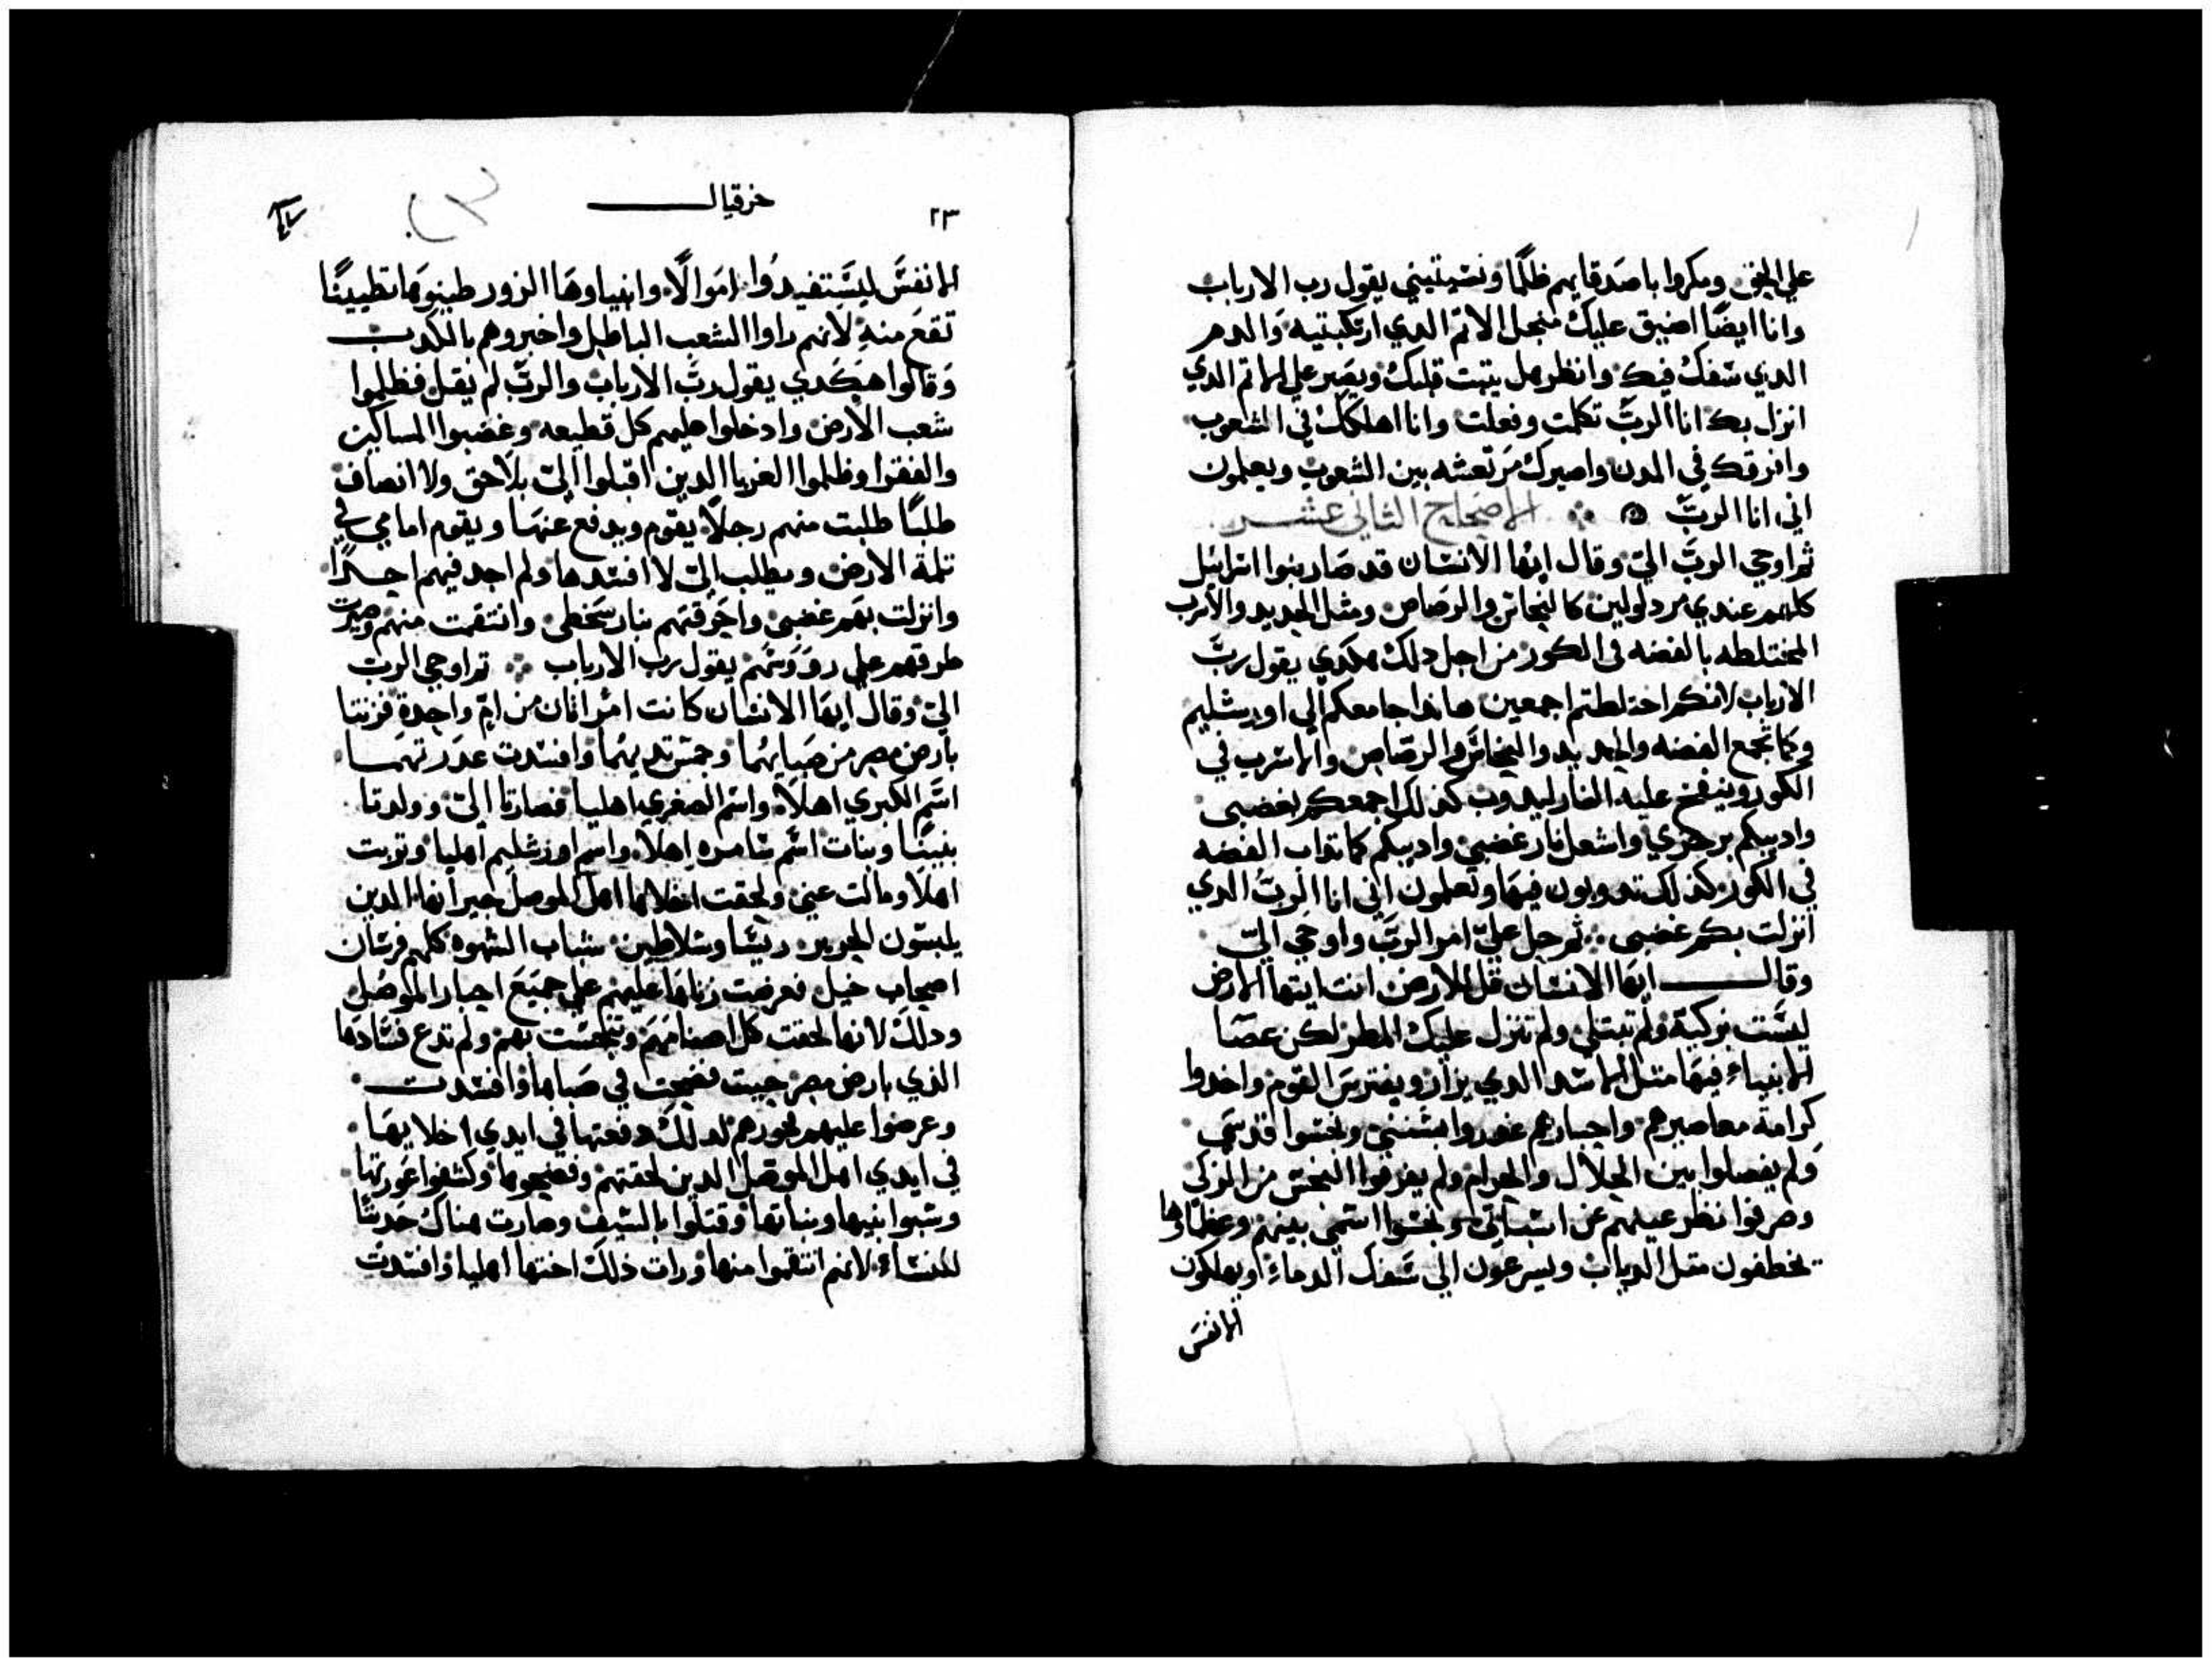 علي الحق ومكروا باصدقايهم ظلمًا ونسيتيني يقول رب الارباب
وانا ايضًا اضيق عليك منجل الاثم الدي ارتكبتيه والدم
الدي سفك فيك وانظر هل يتبت قلبك ويصبر علي الاتم الدي
انزل بك انا الربّ تكلمت وفعلت وانا اهلكك في الشعوب
وافرقك في المدن واصيرك مرتعشه بين الشعوب ويعلمون
اني انا الربّ الاصحاح الثاني عشر
ثم اوحي الربّ اليّ وقال ايها الانسان قد صار بنوا اسرائيل
كلهم عندي مردولين كالنحاس والرصاص ومثل الحديد والاسرب
المختلطه بالفضه في الكور من اجل دلك هكدي يقول ربّ
الارباب لانكم اختلطتم اجمعين هاندا جامعكم الي اورشليم
وكما تجمع الفضه والحديد والنحاس والرصاص والاسرب في
الكور وينفخ عليه النار ليدوب كذلك اجمعكم بغضبي
وادبيكم برجزي واشعل نار غضبي وادبيكم كما تداب الفضه
في الكور كذلك تدوبون فيها وتعلمون اني انا الربّ الدي
انزلت بكم غضبي ثم حل عليّ امر الربّ واوحي اليّ
وقال ايها الانسان قل للارض انت ايتها الارض
ليست بزكية ولم تبتلي ولم تنزل عليك المطر لكن عصا
الانبياء فيها متل الاسد الدي يزار ويفترس القوم واخدوا
كرامة معاصيرهم واحبارهم غدروا بسنني ونجسوا قدسي
ولم يفصلوا بين الحلال والحرام ولم يفرقوا النجس من الزكي
وصرفوا نظر عينهم عن اسباتي ونجسوا اسمي بينهم وعظماوها
يخطفون متل الدياب ويسرعون الي سفك الدماء ويهلكون
الانفس
٢٣ حزقيال
الانفس ليستفيدوا اموالًا وانبياوها الزور طينوها تطيينًا
تقع منه لانهم راوا الشعب الباطل واخبروهم بالكدب
وقالوا هكدي يقول ربّ الارباب والربّ لم يقل فظلموا
شعب الارض وادخلوا عليهم كل قطيعه وغضبوا المساكين
والفقرا وظلموا الغربا الدين اقبلوا اليّ بلا حق ولا انصاف
طلبًا طلبت منهم رجلًا يقوم ويدفع عنها ويقوم امامي في
تلمة الارض ويطلب اليّ لا افسدها ولم اجد فيهم احدًا
وانزلت بهم غضبي واحرقتهم بنار سخطي وانتقمت منهم وصيرت
طرقهم علي رووسهم يقول ربّ الارباب تم اوحي الربّ
اليّ وقال ايها الانسان كانت امراتان من امّ واحدة فزنتا
بارض مصر من صباهما وجس تدييهما وافسدت عدرتهما
اسم الكبري اهلا واسم الصغري اهليا فصارتا اليّ وولدتا
بنينًا وبنات اسم سامره اهلا واسم اورشليم اهليا وتربت
اهلا ومالت عني ولحقت اخلاها اهل الموصل جيرانها الدين
يلبسون الحرير ريسًا وسلاطين شباب الشهوه كلهم فرسان
اصحاب خيل فعرضت زناها عليهم علي جميع احبار الموصل
ودلك لانها لحقت كل اصنامهم وتنجست بهم ولم تدع فسادها
الذي بارض مصر حيت فضحت في صباها وافسدت
وعرضوا عليهم فجورهم لدلك دفعتها في ايدي اخلايها
في ايدي اهل الموصل الدين لحقتهم وفضحوها وكشفوا عورتها
وسبوا بنيها وبناتها وقتلوا بالسيف وصارت هناك حديثًا
للنساء لانهم انتقموا منها ورات ذلك اختها اهليا وافسدت